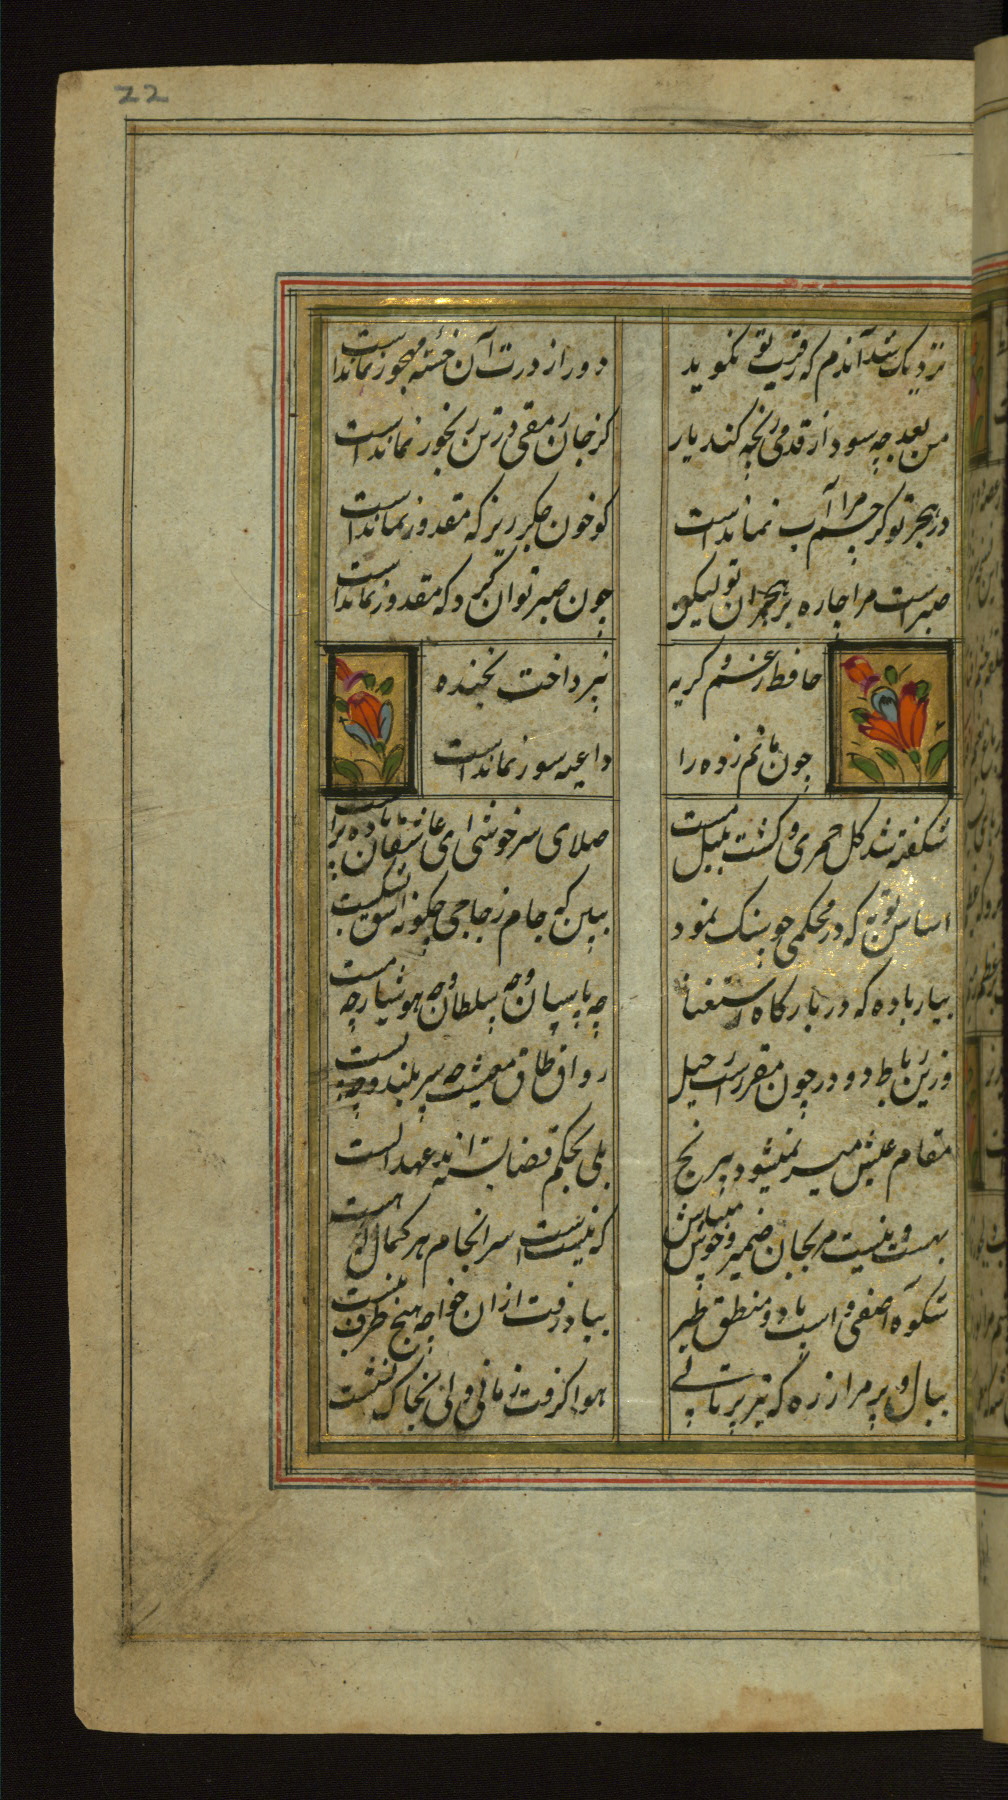 22
نزدیک شد آندم که رقیب تو نکوید دور از درت آن خسته مهجور نماندست
من بعد چه سود ار قدمی رنجه کند یار کز جان رمقی در تن رنجور نماندست
در هجر تو کر چشم مرا آب نماندست کو خون جکر ریز که مقدور نماندست
صبرست مرا چاره بهجران تو لیکن چون صبر توان کرد که مقدور نماندست
حافظ ز غم و کریه نپرداخت بخنده
چون ماتم زده را داعیه سور نماندست
شکفته شد کل حمری و کشت بلبل مست صلای سرخوشی ای عاشقان باده پرست
اساس توبه که در محکمی چو سنک نمود ببین که جام زجاجی چکونه اش بشکست
بیار باده که در بارکاه استغنا چه پاسبان و چه سلطان و چه هوشیار چه مست
ازین رباط دو در چون مقررست رحیل رواق طاق معیشت چه سربلند و چه پست
مقام عیش میسر نمیشود بیرنج بلی بحکم قضا بسته اند عهد الست
بهست و نیست مرنجان ضمیر و خوش میباش که نیستیست سرانجام هر کمال که هست
شکوه آصفی و اسب باد و منطق طیر بباد رفت ازان خواجه هیچ طرف نبست
ببال و پر مرو از ره که تیر پرتابی هوا کرفت زمانی ولی بخاک نشست